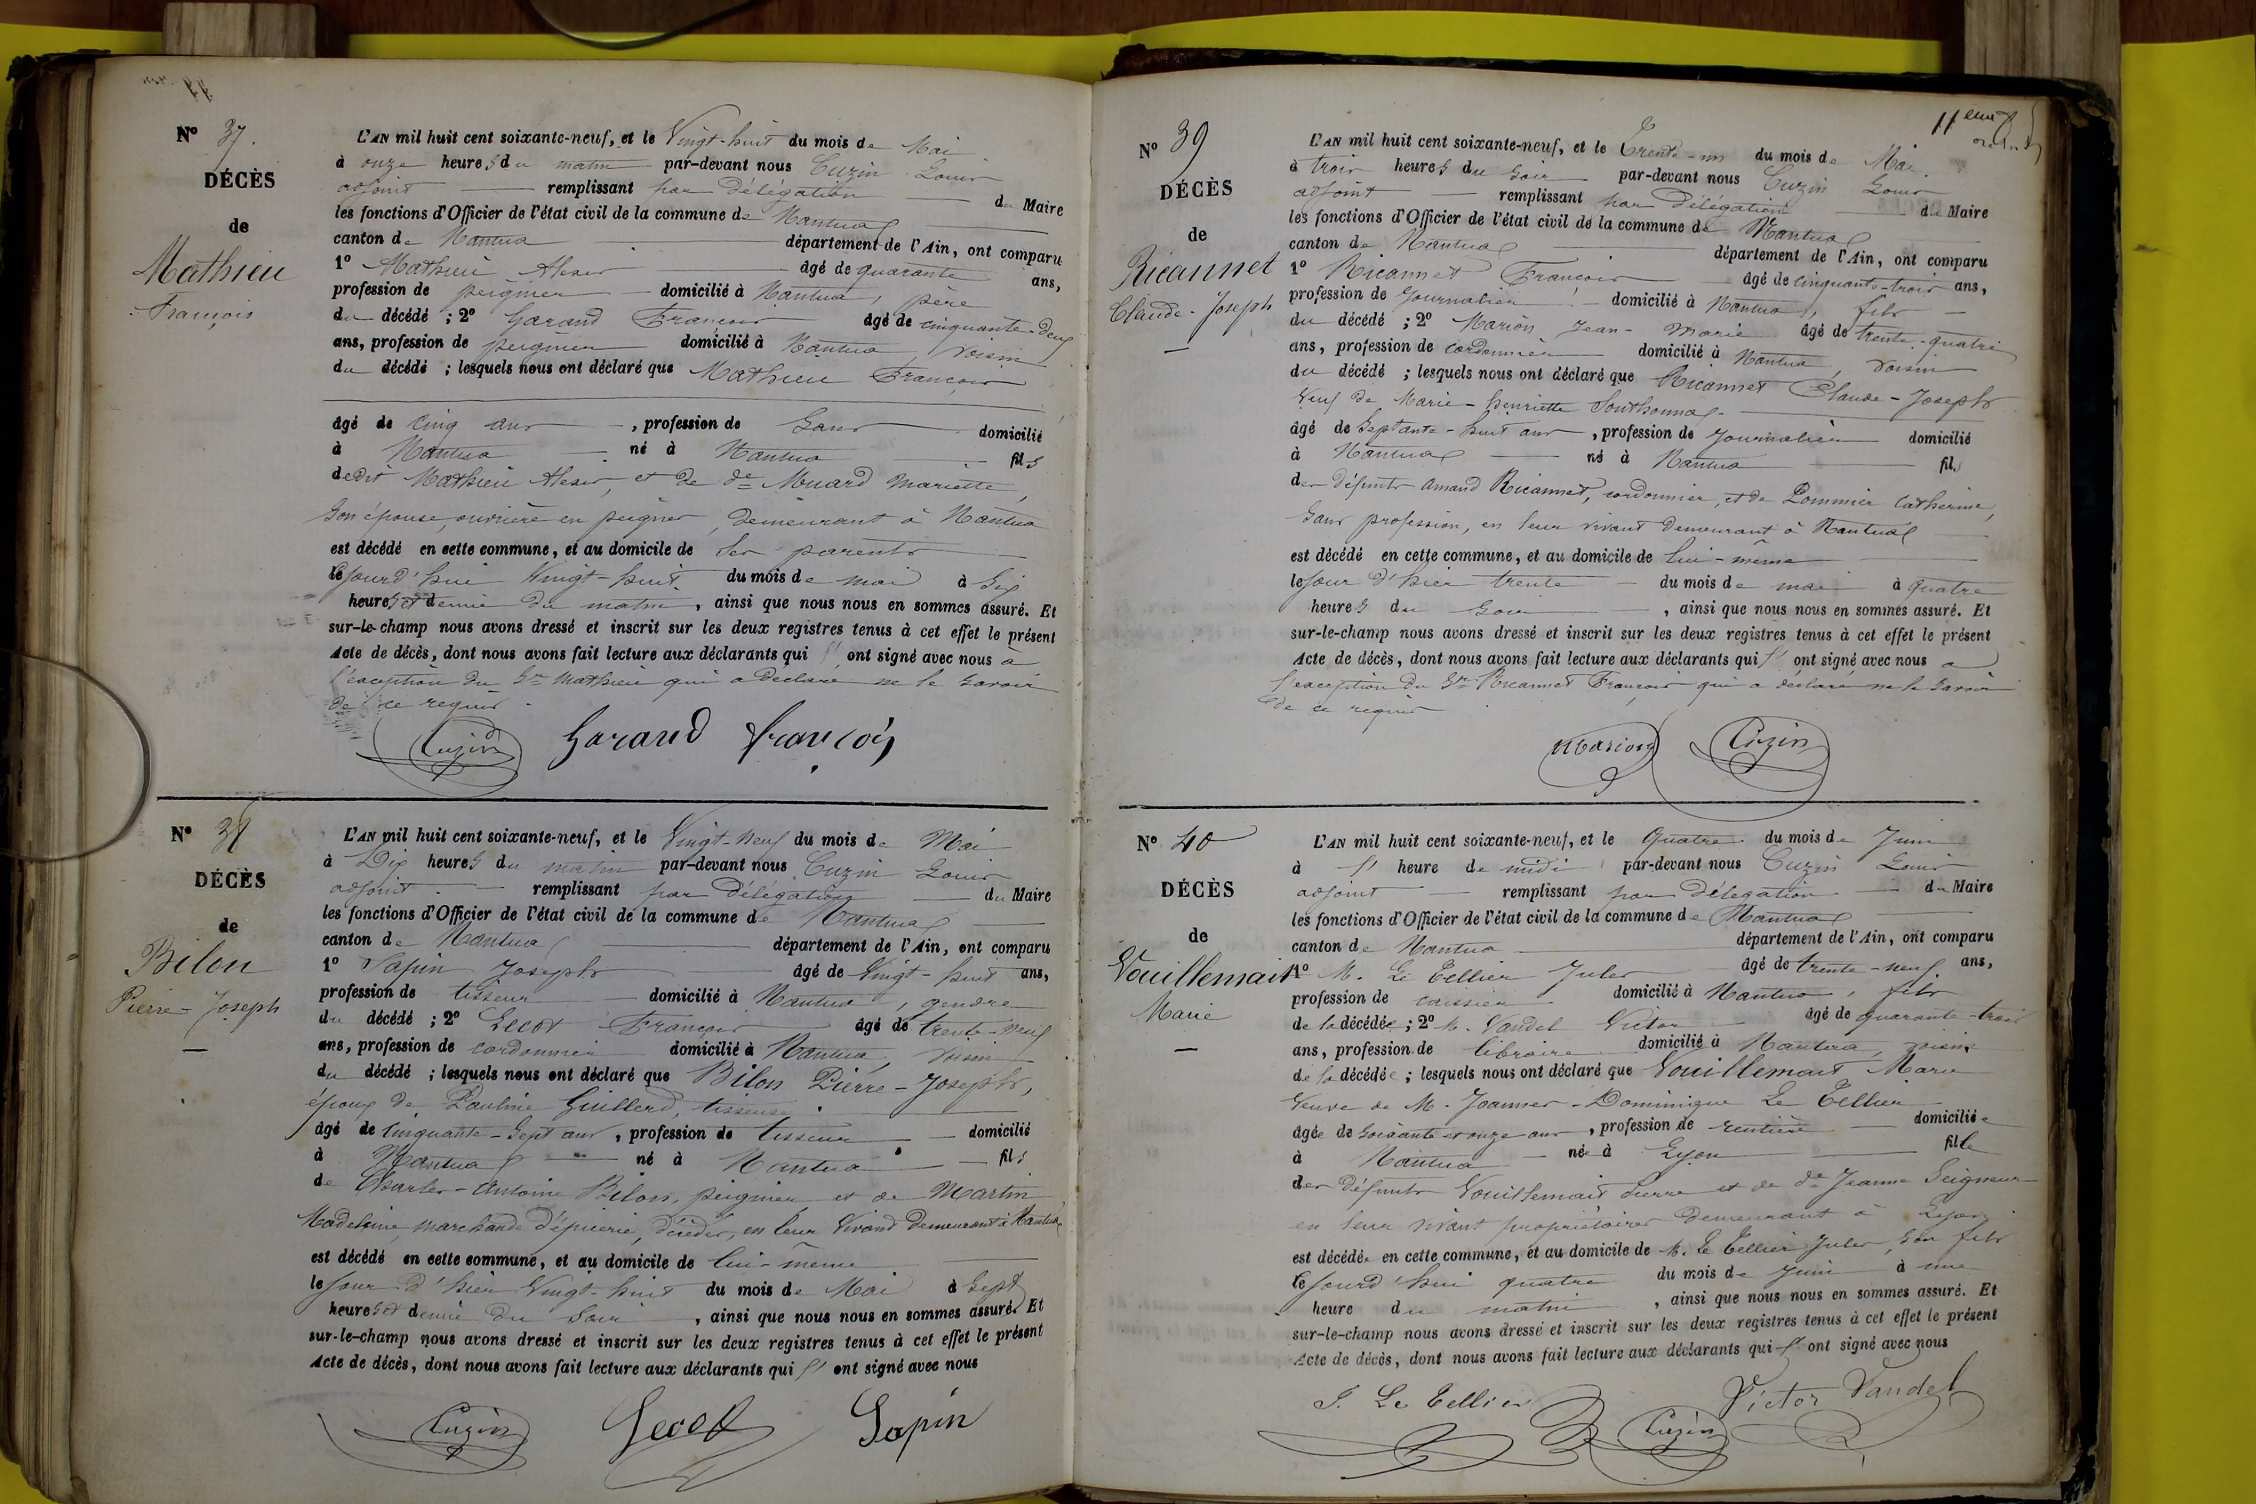 N° 37.
DÉCÈS
de
Mathieu
François
L'AN mil huit cent soixante-neuf, et le Vingt-huit du mois de Mai
à onze heures du matin par-devant nous Cuzin Louis
adjoint remplissant par délégation du Maire
les fonctions d'Officier de l'état civil de la commune de Nantua
canton de Nantua département de l'Ain, ont comparu
1° Mathieu Alexis âgé de quarante ans,
profession de peignier domicilié à Nantua, père
du décédé ; 2° Garand François âgé de cinquante-deux
ans, profession de peignier domicilié à Nantua, voisin
du décédé ; lesquels nous ont déclaré que Mathieu François
âgé de cinq ans, profession de Sans domicilié
à Nantua né à Nantua fils
dedit Mathieu Alexis, et de de Muard Mariette,
son épouse, ouvrière en peignes, demeurant à Nantua
est décédé en cette commune, et au domicile de ses parents
lejourd'hui Vingt-huit du mois de mai à six
heures et demie du matin, ainsi que nous nous en sommes assuré. Et
sur-le-champ nous avons dressé et inscrit sur les deux registres tenus à cet effet le présent
Acte de décès, dont nous avons fait lecture aux déclarants qui l' ont signé avec nous à
l'exception du Sr Mathieu qui a déclaré ne le savoir
de ce requis.
Cuzin Garand françois
N° 38
DÉCÈS
de
Bilon
Pierre-Joseph
L'AN mil huit cent soixante-neuf, et le Vingt-neuf du mois de Mai
à Dix heures du matin par-devant nous Cuzin Louis
adjoint remplissant par délégation du Maire
les fonctions d'Officier de l'état civil de la commune de Nantua
canton de Nantua département de l'Ain, ont comparu
1° Sapin Joseph âgé de Vingt-huit ans,
profession de tisseur domicilié à Nantua, gendre
du décédé ; 2° Lecot François âgé de trente-neuf
ans, profession de cordonnier domicilié à Nantua, voisin
du décédé ; lesquels nous ont déclaré que Bilon Pierre-Joseph,
époux de Pauline Guillerd, tisseuse
âgé de cinquante-sept ans, profession de tisseur domicilié
à Nantua né à Nantua fils
de Charles-Antoine Bilon, peignier et de Martin
Madeleine, marchande d'épicerie, décédés, en leur vivant demeurant à Nantua
est décédé en cette commune, et au domicile de lui-même
le jour d'hier Vingt-huit du mois de Mai à Sept
heures et demie du soir, ainsi que nous nous en sommes assuré. Et
sur-le-champ nous avons dressé et inscrit sur les deux registres tenus à cet effet le présent
Acte de décès, dont nous avons fait lecture aux déclarants qui l' ont signé avec nous
Cuzin Lecot Sapin
11eme
N° 39
DÉCÈS
de
Ricannet
Claude-Joseph
L'AN mil huit cent soixante-neuf, et le Trente-un du mois de Mai
à trois heures du soir par-devant nous Cuzin Louis
adjoint remplissant par délégation du Maire
les fonctions d'Officier de l'état civil de la commune de Nantua
canton de Nantua département de l'Ain, ont comparu
1° Ricannet François âgé de cinquante-trois ans,
profession de Journalier domicilié à Nantua, fils
du décédé ; 2° Marion Jean-Marie âgé de trente-quatre
ans, profession de cordonnier domicilié à Nantua, voisin
du décédé ; lesquels nous ont déclaré que Ricannet Claude-Joseph
Veuf de Marie-henriette Southonnax
âgé de Septante-huit ans, profession de Journalier domicilié
à Nantua né à Nantua fils
des défunts Amand Ricannet, cordonnier, et de Pommier Catherine,
sans profession, en leur vivant demeurant à Nantua
est décédé en cette commune, et au domicile de lui-même
le jour d'hier trente du mois de mai à quatre
heures du soir, ainsi que nous nous en sommes assuré. Et
sur-le-champ nous avons dressé et inscrit sur les deux registres tenus à cet effet le présent
Acte de décès, dont nous avons fait lecture aux déclarants qui l' ont signé avec nous à
l'exception du Sr Ricannet François qui a déclaré ne le savoir
de ce requis
Marion Cuzin
N° 40
DÉCÈS
de
Vouillemait
Marie
L'AN mil huit cent soixante-neuf, et le Quatre du mois de Juin
à l' heure de midi par-devant nous Cuzin Louis
adjoint remplissant par délégation du Maire
les fonctions d'Officier de l'état civil de la commune de Nantua
canton de Nantua département de l'Ain, ont comparu
1° M. Le Tellier Jules âgé de trente-neuf ans,
profession de caissier domicilié à Nantua, fils
de la décédée ; 2° M. Vandel Victor âgé de quarante-trois
ans, profession de libraire domicilié à Nantua, voisin
de la décédée ; lesquels nous ont déclaré que Vouillemait Marie
Veuve de M. Joannes-Dominique Le Tellier
âgée de soixante et onze ans, profession de rentière domiciliée
à Nantua née à Lyon fille
des défunts Vouillemait Pierre et de de Jeanne Seigneur
en leur vivant propriétaires demeurant à Lyon
est décédée en cette commune, et au domicile de M. Le Tellier Jules, son fils
lejourd'hui quatre du mois de Juin à une
heure du matin, ainsi que nous nous en sommes assuré. Et
sur-le-champ nous avons dressé et inscrit sur les deux registres tenus à cet effet le présent
Acte de décès, dont nous avons fait lecture aux déclarants qui l' ont signé avec nous
J. Le Tellier Cuzin Victor Vandel